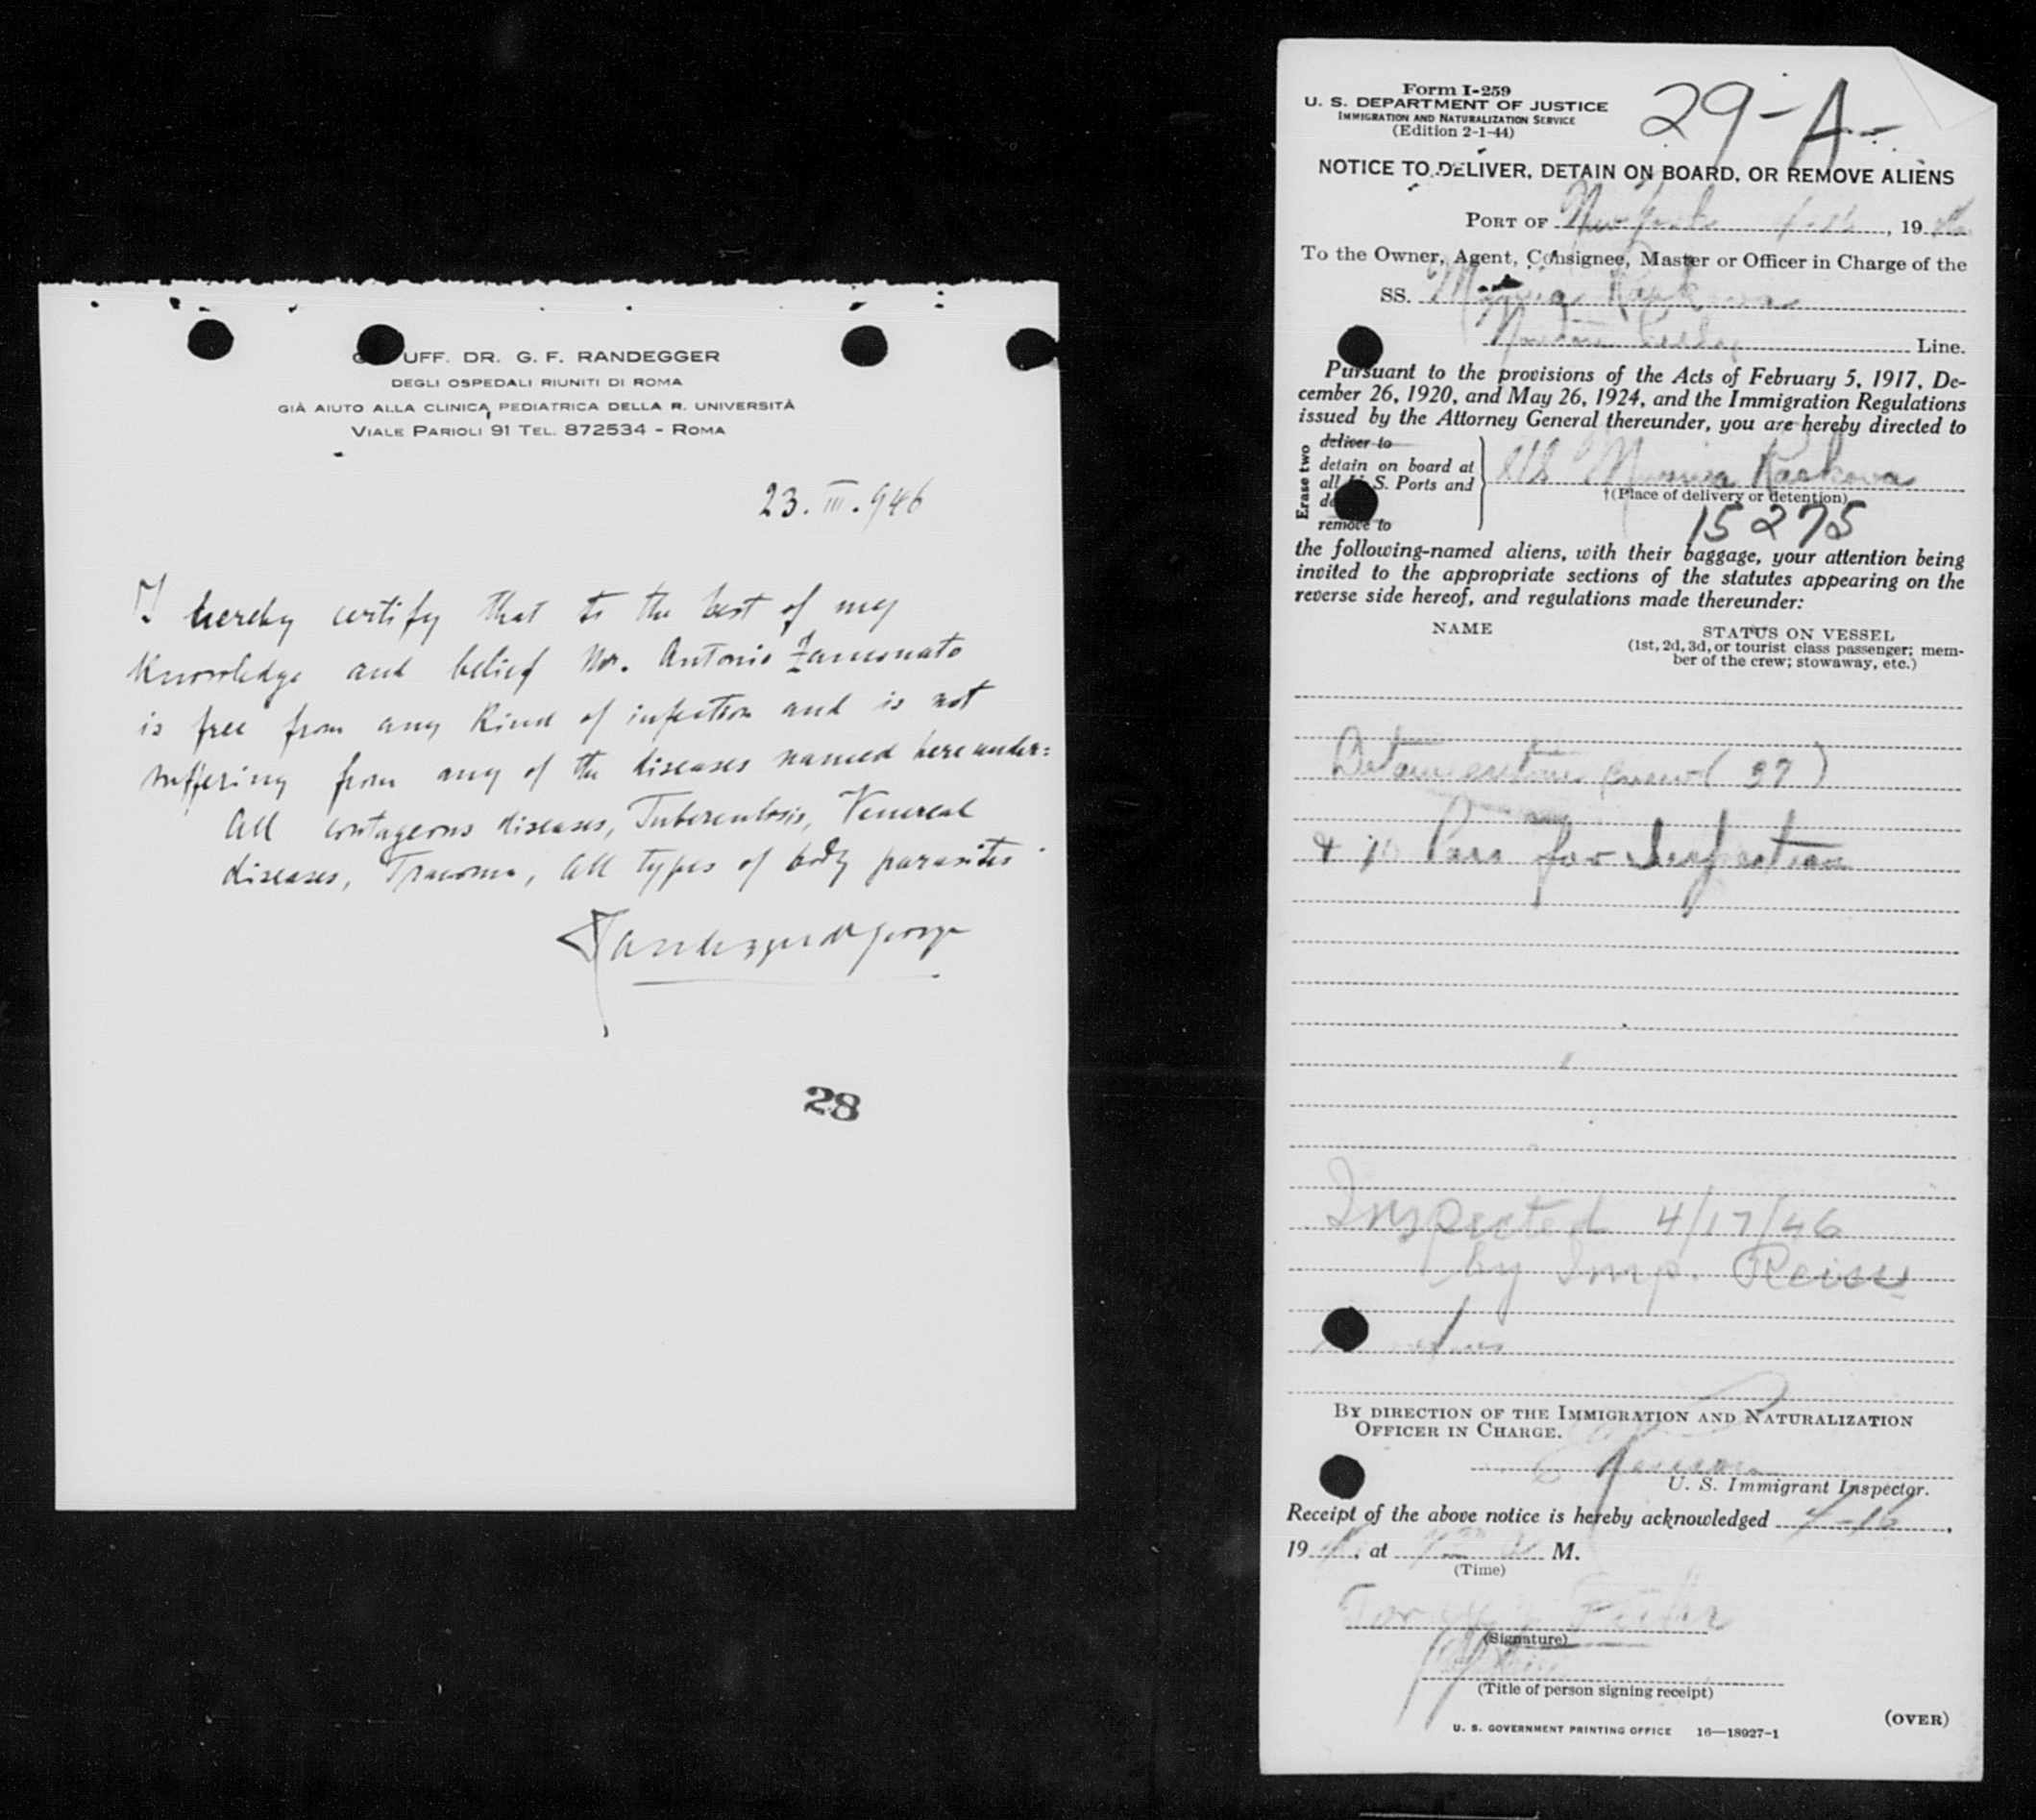 UFF. DR. G. F. RANDEGGER
DEGLI OSPEDALI RIUNITI DI ROMA
GIÀ AIUTO ALLA CLINICA PEDIATRICA DELLA R. UNIVERSITÀ
VIALE PARIOLI 91 TEL. 872534 - ROMA
23. III. 946
I hereby certify that to the best of my
Knowledge and belief Mr. Antonio Zamonato
is free from any kind of infection and is not
suffering from any of the diseases named hereunder:
All contageous diseases, Tuberculosis, Venereal
diseases, Tracoma, All types of body parasites
28
Form I-259
U. S. DEPARTMENT OF JUSTICE
IMMIGRATION AND NATURALIZATION SERVICE
(Edition 2-1-44)
29-A-
NOTICE TO DELIVER, DETAIN ON BOARD, OR REMOVE ALIENS
PORT OF New York , 19
To the Owner, Agent, Consignee, Master or Officer in Charge of the
SS. Raskova
Line.
Pursuant to the provisions of the Acts of February 5, 1917, De-
cember 26, 1920, and May 26, 1924, and the Immigration Regulations
issued by the Attorney General thereunder, you are hereby directed to
Erase two
deliver to
detain on board at
all U. S. Ports and
remove to
Raskova
†(Place of delivery or detention)
15275
the following-named aliens, with their baggage, your attention being
invited to the appropriate sections of the statutes appearing on the
reverse side hereof, and regulations made thereunder:
NAME
STATUS ON VESSEL
(1st, 2d, 3d, or tourist class passenger; mem-
ber of the crew; stowaway, etc.)
Detain entire crew (37)
Pass for Inspection
Inspected 4/17/46
by Insp. Reiss
BY DIRECTION OF THE IMMIGRATION AND NATURALIZATION
OFFICER IN CHARGE.
U. S. Immigrant Inspector.
Receipt of the above notice is hereby acknowledged 4-16,
19 , at M.
(Time)
(Signature)
(Title of person signing receipt)
U. S. GOVERNMENT PRINTING OFFICE 16—18927-1
(OVER)